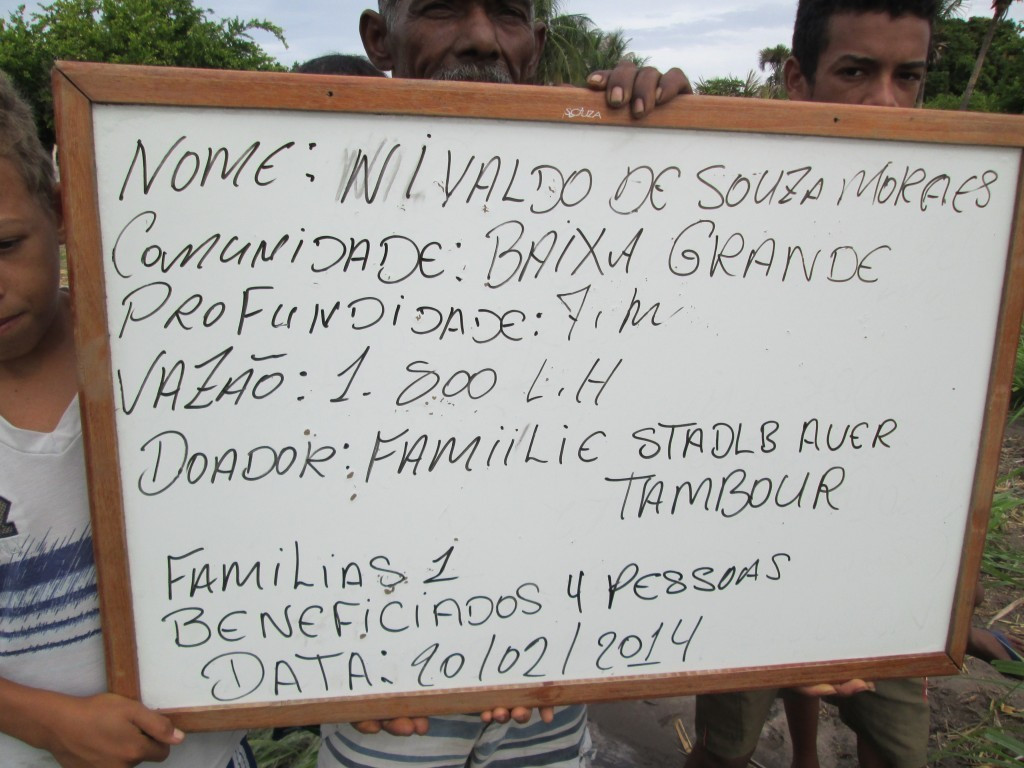 SOUZA
NOME: NIVALDO DE SOUZA MORAES
COMUNIDADE: BAIXA GRANDE
PROFUNDIDADE: 7, M
VAZÃO: 1. 800 L.H
DOADOR: FAMIILIE STADLBAUER
TAMBOUR
FAMILIAS 1
BENEFICIADOS 4 PESSOAS
DATA: 20/02/2014